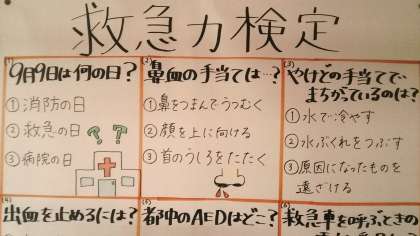 救急力検定
(1)
9月9日は何の日?
① 消防の日
② 救急の日
③ 病院の日
(2)
鼻血の手当ては…?
① 鼻をつまんでうつむく
② 顔を上に向ける
③ 首のうしろをたたく
(3)
やけどの手当てで
まちがっているのは?
① 水で冷やす
② 水ぶくれをつぶす
③ 原因になったものを
遠ざける
(4)
出血を止めるには?
(5)
都中のAEDはどこ?
(6)
救急車を呼ぶときの